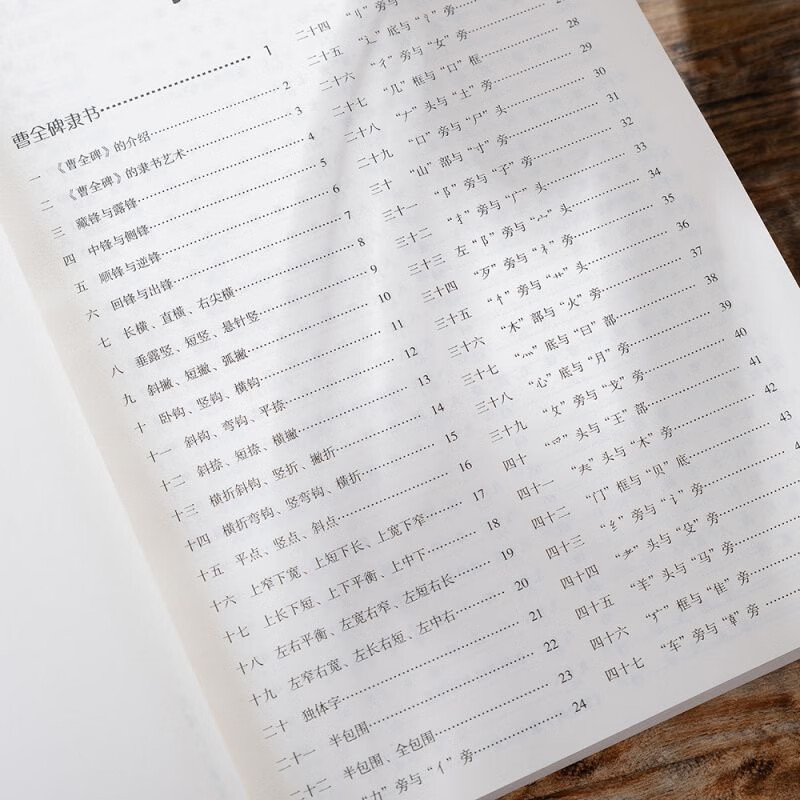 曹全碑隶书……1
一 《曹全碑》的介绍……2
二 《曹全碑》的隶书艺术……3
三 藏锋与露锋……4
四 中锋与侧锋……5
五 顺锋与逆锋……6
六 回锋与出锋……7
七 长横、直横、右尖横……8
八 垂露竖、短竖、悬针竖……9
九 斜撇、短撇、弧撇……10
十 卧钩、竖钩、横钩……11
十一 斜钩、弯钩、平捺……12
十二 斜捺、短捺、横撇……13
十三 横折斜钩、竖折、撇折……14
十四 横折弯钩、竖弯钩、横折……15
十五 平点、竖点、斜点……16
十六 上窄下宽、上短下长、上宽下窄……17
十七 上长下短、上下平衡、上中下……18
十八 左右平衡、左宽右窄、左短右长……19
十九 左窄右宽、左长右短、左中右……20
二十 独体字……21
二十一 半包围……22
二十二 半包围、全包围……23
“力”旁与“亻”旁……24
二十四 “刂”旁与
二十五 “辶”底与“讠”旁
二十六 “彳”旁与“女”旁……
二十七 “几”框与“口”框……28
二十八 “𠂉”头与“土”旁……29
二十九 “口”旁与“户”头……30
三十 “山”部与“寸”旁……31
三十一 “阝”旁与“子”旁……32
三十二 “扌”旁与“广”头……33
三十三 左“阝”旁与“宀”头……34
三十四 “歹”旁与“礻”旁……35
三十五 “忄”旁与“艹”头……36
三十六 “木”部与“火”旁……37
三十七 “灬”底与“日”部……38
三十八 “心”底与“月”旁……39
三十九 “攵”旁与“戈”旁……40
四十 “罒”头与“王”部……41
四十一 “𡗗”头与“木”旁……42
四十二 “门”框与“贝”底……43
四十三 “纟”旁与“讠”旁……
四十四 “耂”头与“殳”旁……
四十五 “羊”头与“马”旁……
四十六 “疒”框与“隹”旁……
四十七 “车”旁与“𠦝”旁……